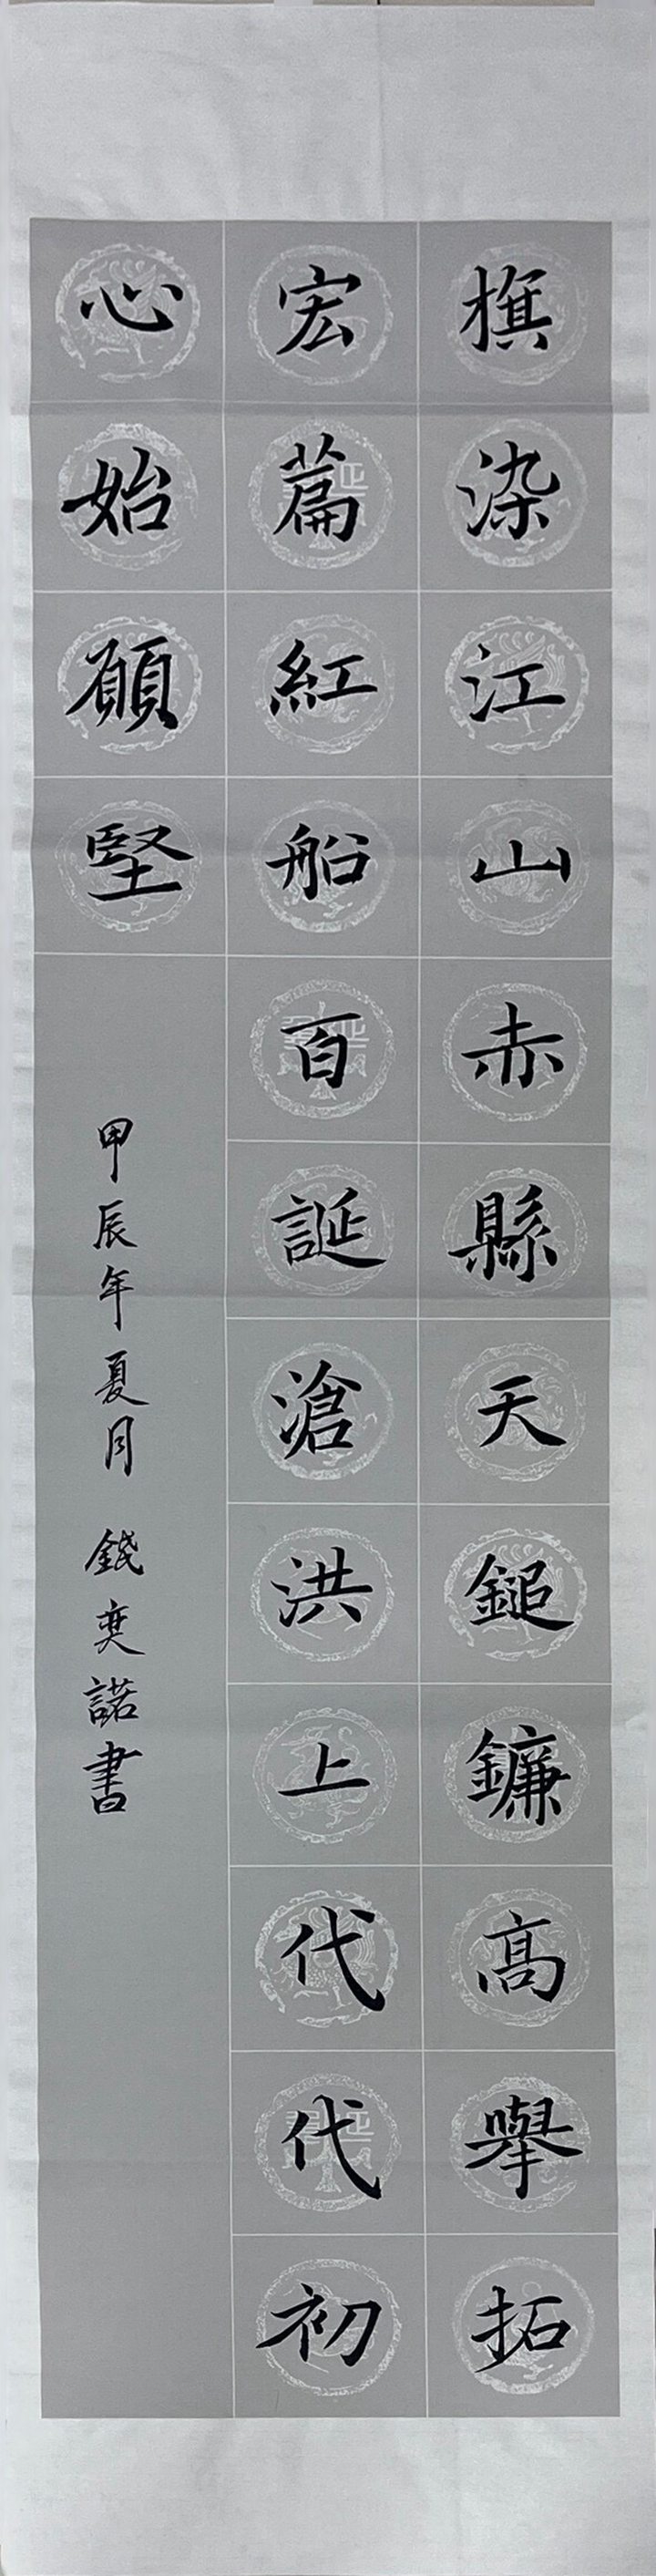 旗染江山赤縣天鎚鐮髙舉拓
宏篇紅船百誕滄洪上代代初
心始願堅
甲辰年夏月 錢奕諾書